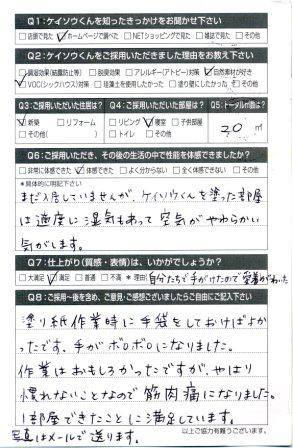 Q1:ケイソウくんを知ったきっかけをお聞かせ下さい
□店頭で見た □ホームページで調べた □NETショッピングで見た □雑誌で見た □その他
Q2:ケイソウくんをご採用いただきました理由をお教え下さい
□調湿効果(結露防止等) □脱臭効果 □アレルギー(アトピー)対策 □自然素材が好き
□VOC(シックハウス)対策 □珪藻土を使用したかった □塗り壁にしたかった □その他
Q3:ご採用いただいた住居は? Q4:ご採用いただいた部屋は? Q5:トータル㎡数は?
□新築 □リフォーム □リビング □寝室 □子供部屋 20㎡
□その他( ) □トイレ □その他( )
Q6:ご採用いただき、その後の生活の中で性能を体感できましたか?
□非常に体感できた □体感できた □よく分からない □全く体感できない □その他
*具体的に明記下さい
まだ入居していませんが、ケイソウくんを塗った部屋
は適度に湿気もあって空気がやわらかい
気がします。
Q7:仕上がり(質感・表情)は、いかがでしょうか?
□大満足 □満足 □普通 □不満 *理由(自分たちで手がけたので愛着がわいた
Q8:ご採用〜後を含め、ご意見・ご感想ございましたらご自由にご記入下さい
塗り紙作業時に手袋をしておけばよか
ったです。手がボロボロになりました。
作業はおもしろかったですが、やはり
慣れないことなので筋肉痛になりました。
1部屋できたことに満足しています。
写真はメールで送ります。
以上ご協力有難うございます。